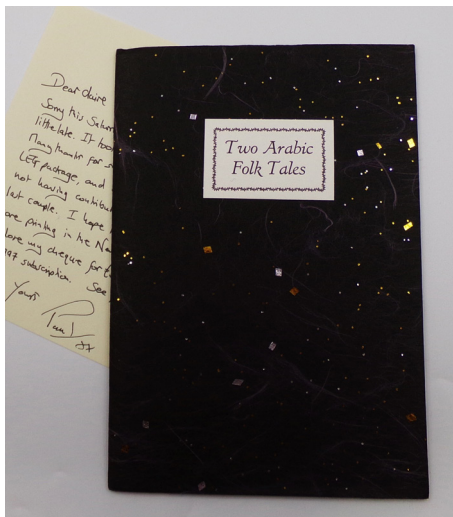 Dear Claire
Sorry this
little late. It took
Many thanks for
package, and
not having
last couple. I hope
printing in the
my cheque for
subscription. See
Yours
Two Arabic
Folk Tales